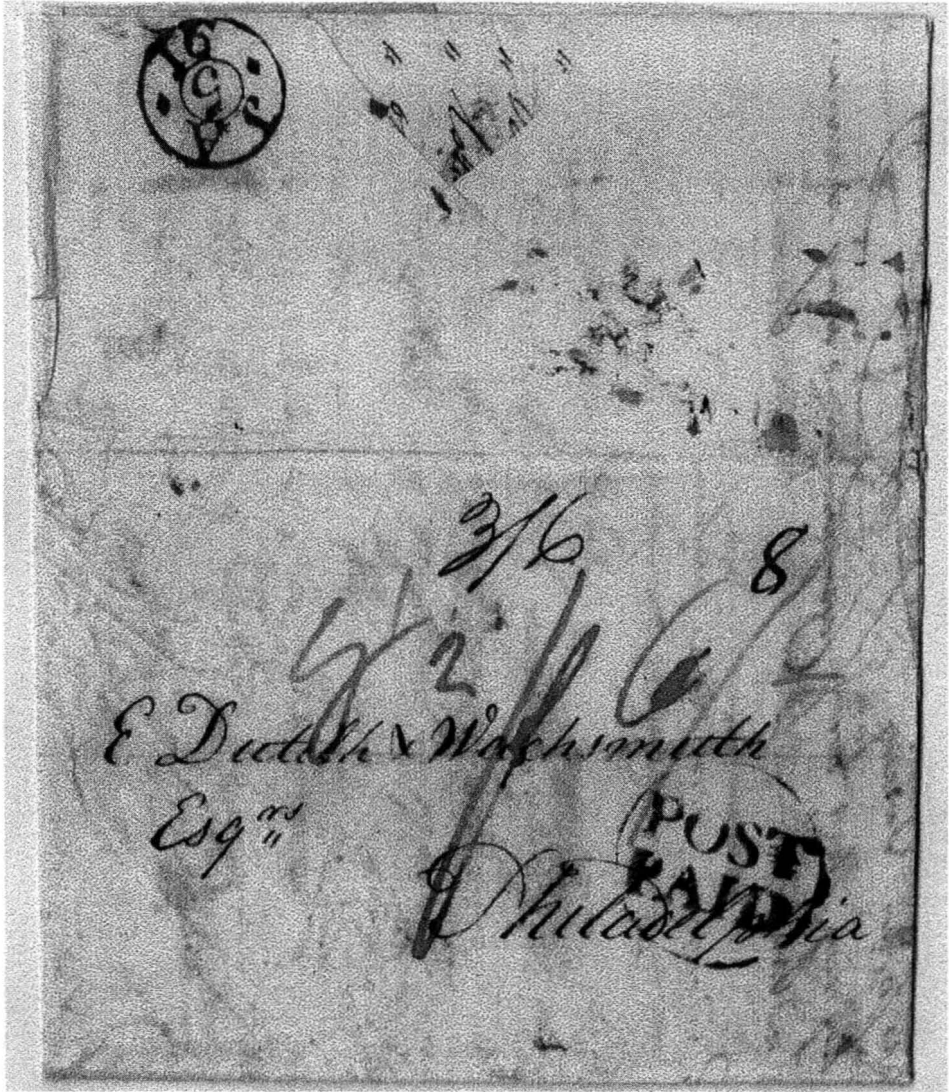 3/6
8
2
E Dutilh & Wachsmuth
Esqrs
POST
PAID
Philadelphia